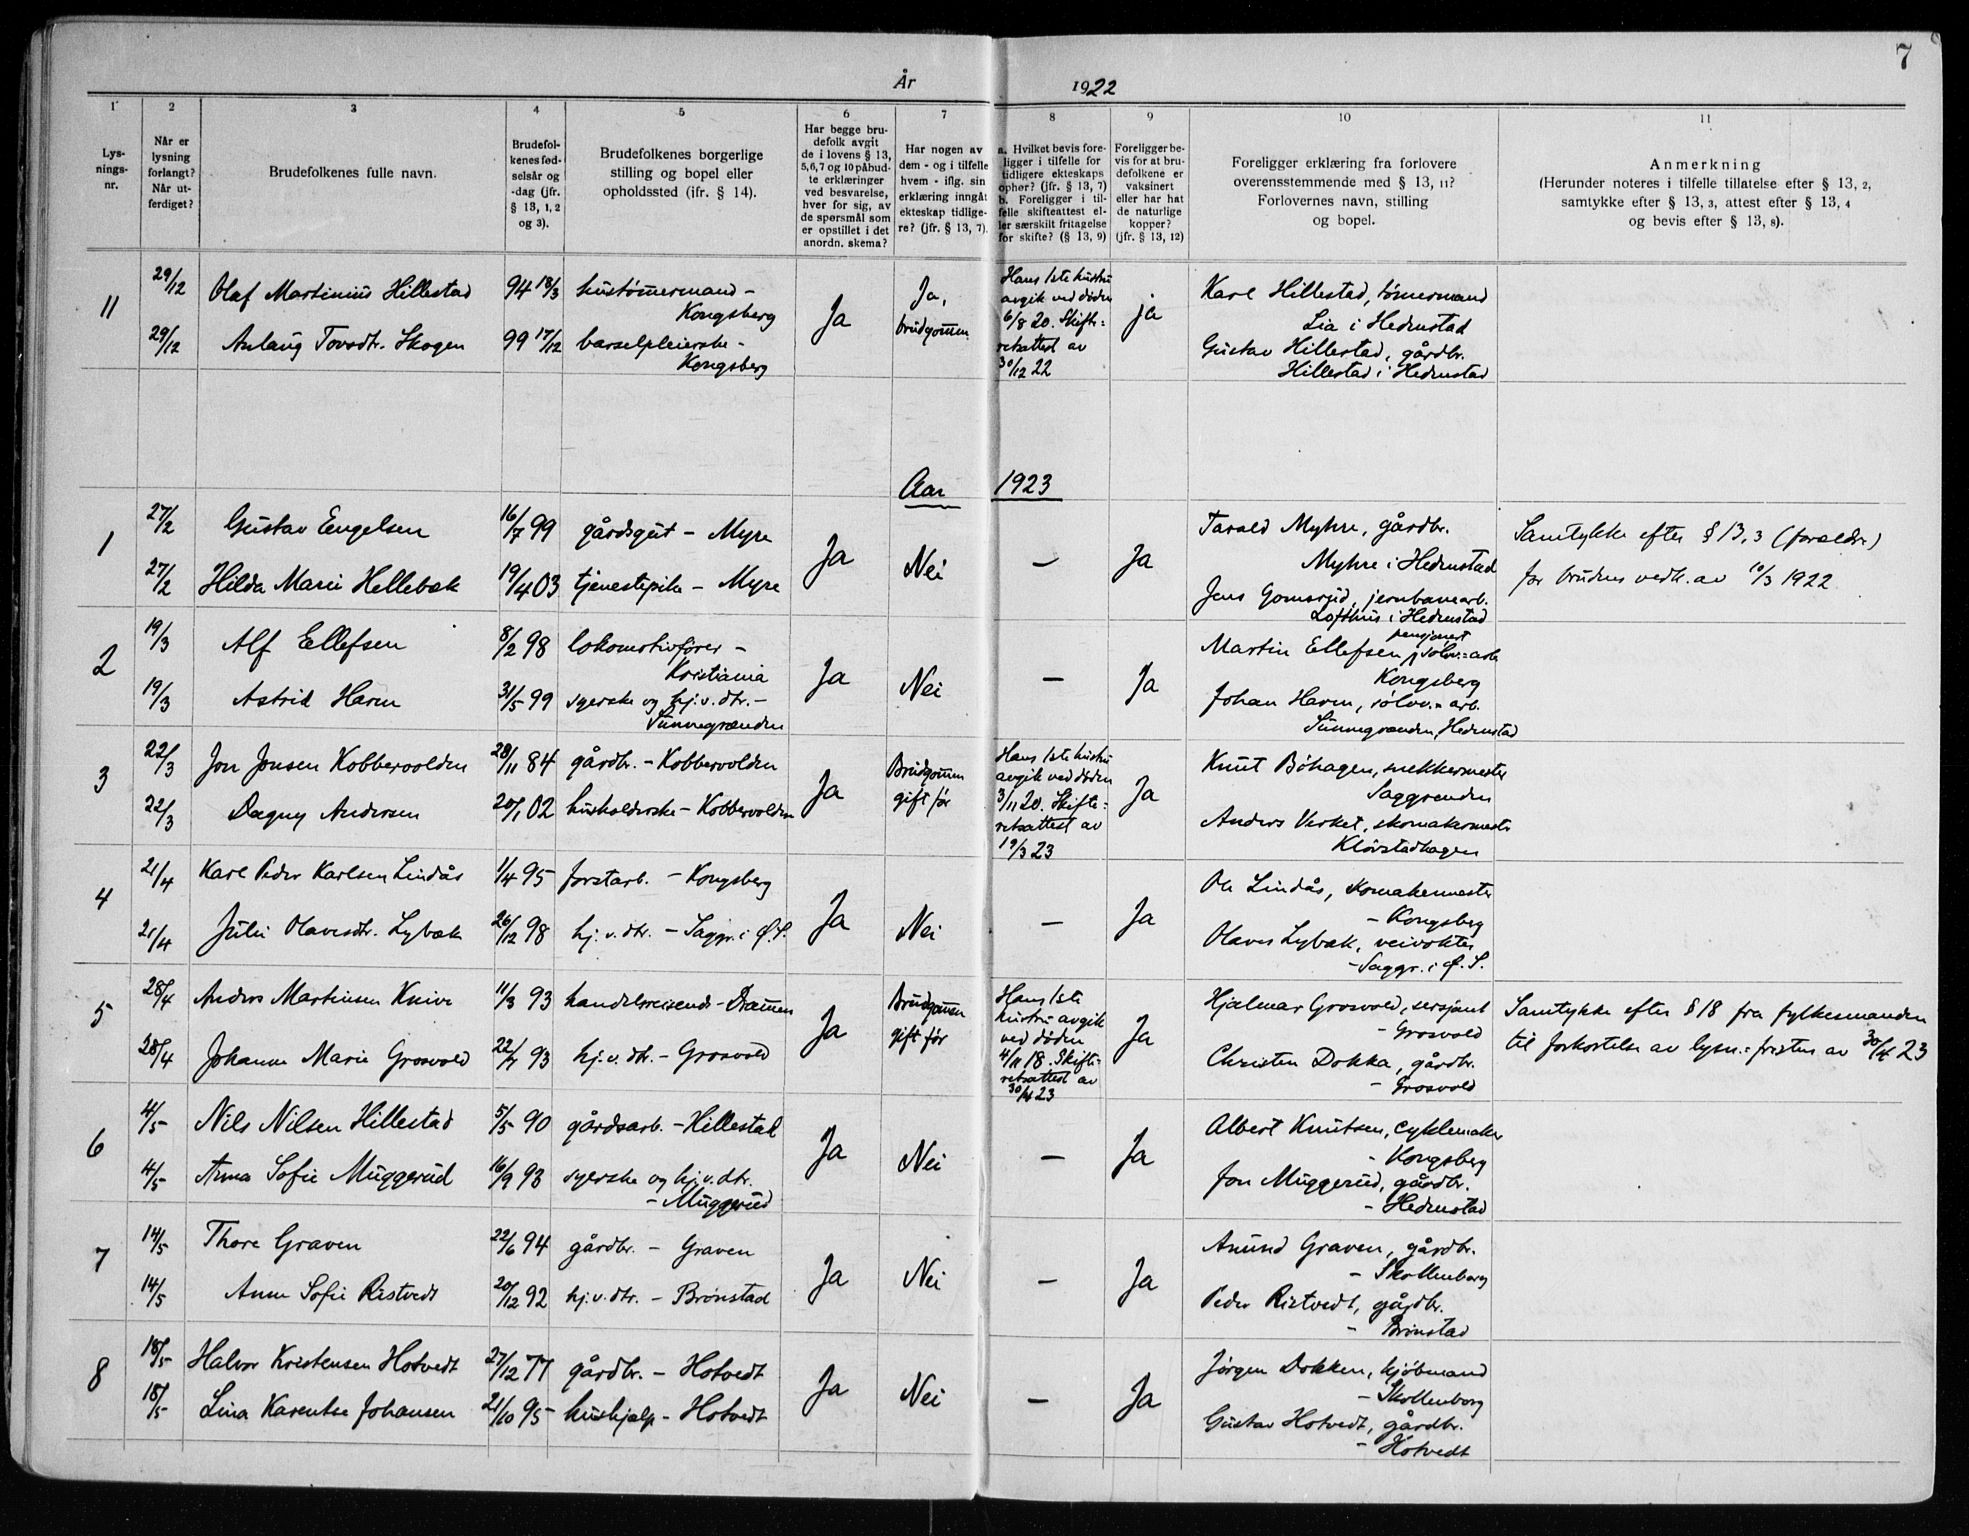 7
År 1922
1 2 3 4 5 6 7 8 9 10 11
Lys-
nings-
nr.
Når er
lysning
forlangt?
Når ut-
ferdiget?
Brudefolkenes fulle navn.
Brudefol-
kenes fød-
selsår og
-dag (jfr.
§ 13, 1, 2
og 3).
Brudefolkenes borgerlige
stilling og bopel eller
opholdssted (ifr. § 14).
Har begge bru-
defolk avgit
de i lovens § 13,
5,6,7 og 10 påbud-
te erklæringer
ved besvarelse,
hver for sig, av
de spørsmål som
er opstillet i det
anordn. skema?
Har nogen av
dem - og i tilfelle
hvem - iflg. sin
erklæring inngåt
ekteskap tidlige-
re? (jfr. § 13, 7).
a. Hvilket bevis fore-
ligger i tilfelle for
tidligere ekteskaps
ophør? (jfr. § 13, 7)
b. Foreligger i til-
felle skifteattest el-
ler særskilt fritagelse
for skifte? (§ 13, 9)
Foreligger be-
vis for at bru-
defolkene er
vaksinert
eller har hat
de naturlige
kopper?
(jfr. § 13, 12)
Foreligger erklæring fra forlovere
overensstemmende med § 13, 11?
Forlovernes navn, stilling
og bopel.
Anmerkning
(Herunder noteres i tilfelle tillatelse efter § 13, 2,
samtykke efter § 13, 3, attest efter § 13, 4
og bevis efter § 13, 8).
11
29/12 Olaf Martinius Hillestad 94 18/3 hustømmermand -
Kongsberg
29/12 Aslaug Tovsdtr. Skogen 99 17/12 barselpleierske -
Kongsberg
Ja
Ja,
brudgommen
Hans 1ste hustru
avgik ved døden
6/8 20. Skifte=
retsattest av
30/12 22
ja
Karl Hillestad, tømermand
Lia i Hedenstad
Gustav Hillestad, gårdbr.
Hillestad i Hedenstad
Aar 1923
1
27/2 Gustav Engelsen 16/7 99 gårdsgut - Myre
27/2 Hilda Marie Hellebæk 19/4 03 tjenestepike - Myre
Ja
Nei
-
Ja
Tarald Myhre, gårdbr.
Myhre i Hedenstad
Jens Gomsrud, jernbanearb.
Lofthus i Hedenstad
Samtykke efter § 13, 3 (foreldre)
for brudens vedk. av 10/3 1922
2
19/3 Alf Ellefsen 8/2 98 lokomotivfører -
Kristiania
19/3 Astrid Haven 31/5 99 syerske og hj.v. dtr. -
Sunnegrænden
Ja
Nei
-
Ja
pensjonert
Martin Ellefsen, sølvv.=arb
Kongsberg
Johan Haven, sølvv.=arb.
Sunnegrænden, Hedenstad
3
22/3 Jon Jonsen Kobbervolden 28/11 84 gårdbr. - Kobbervolden
22/3 Dagny Andersen 20/1 02 husholderske - Kobbervolden
Ja
Brudgommen
gift før
Hans 1ste hustru
avgik ved døden
3/11 20. Skifte=
retsattest av
19/3 23
Ja
Knut Bøhagen, snekkermester
Saggrenden
Anders Verket, skomakermester
Kløvstadhagen
4
21/4 Karl Peder Karlsen Lindås 1/4 95 forstarb. - Kongsberg
21/4 Julie Olavesdtr. Lybæk 26/12 98 hj. v. dtr. - Saggr. i Ø.S.
Ja
Nei
-
Ja
Ole Lindås, skomakermester
- Kongsberg
Olaves Lybæk, veivokter
- Saggr. i Ø.S.
5
28/4 Anders Martinsen Knive 11/3 93 handelsreisende - Drammen
28/4 Johanne Marie Grosvold 22/7 93 hj. v. dtr. - Grosvold
Ja
Brudgommen
gift før
Hans 1ste
hustru avgik
ved døden
4/11 18. Skifte=
retsattest av
30/4 23
Ja
Hjalmar Grosvold, sersjant
- Grosvold
Christen Dokka, gårdbr.
- Grosvold
Samtykke efter § 18 fra fylkesmanden
til forkortelse av lysn.=fristen av 30/4 23
6
4/5 Nils Nilsen Hillestad 5/5 90 gårdsarb. - Hillestad
4/5 Anna Sofie Muggerud 16/9 93 syerske og hj.v. dtr.
- Muggerud
Ja
Nei
-
Ja
Albert Knutsen, cyklemaker
- Kongsberg
Jon Muggerud, gårdbr.
- Hedenstad
7
14/5 Thore Graven 22/6 94 gårdbr. - Graven
14/5 Anne Sofie Ristvedt 20/12 92 hj.v. dtr. - Brønstad
Ja
Nei
-
Ja
Anund Graven, gårdbr.
- Skollenborg
Peder Ristvedt, gårdbr.
- Brønstad
8
18/5 Halvor Kristensen Hotvedt 27/12 77 gårdbr. - Hotvedt
18/5 Lina Karentse Johansen 21/10 95 hushjælp - Hotvedt
Ja
Nei
-
Ja
Jørgen Dokken, kjøbmand
- Skollenborg
Gustav Hotvedt, gårdbr.
- Hotvedt